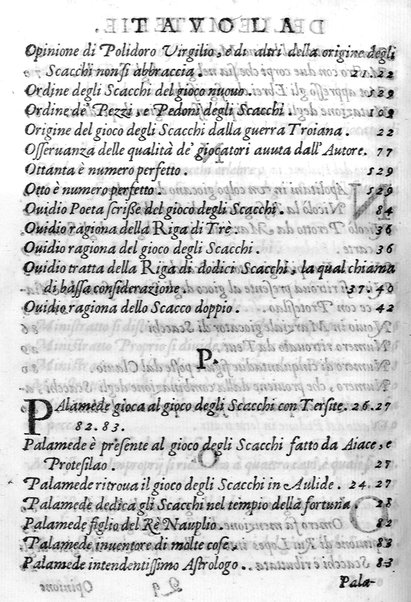 TAVOLA
Opinione di Polidoro Virgilio, e di altri della origine degli
Scacchi non si abbraccia. 21. 22
Ordine degli Scacchi del gioco nuouo. 129
Ordine de' Pezzi, e Pedoni degli Scacchi. 109
Origine del gioco degli Scacchi dalla guerra Troiana. 22
Osseruanza delle qualità de' giocatori auuta dall'Autore. 77
Ottanta è numero perfetto. 129
Otto è numero perfetto. 129
Ouidio Poeta scrisse del gioco degli Scacchi. 84
Ouidio ragiona della Riga di Trè. 36
Ouidio ragiona del gioco degli Scacchi. 36
Ouidio tratta della Riga di dodici Scacchi, la qual chiama
di bassa considerazione. 37. 40
Ouidio ragiona dello Scacco doppio. 42
P.
PAlamede gioca al gioco degli Scacchi con Tersite. 26. 27
82. 83.
Palamede è presente al gioco degli Scacchi fatto da Aiace, e
Protesilao. 27
Palamede ritroua il gioco degli Scacchi in Aulide. 24. 27
Palamede dedica gli Scacchi nel tempio della fortuna 28
Palamede figlio del Rè Nauplio. 82
Palamede inuentore di molte cose. 83
Palamede intendentissimo Astrologo. . 83
Pala-